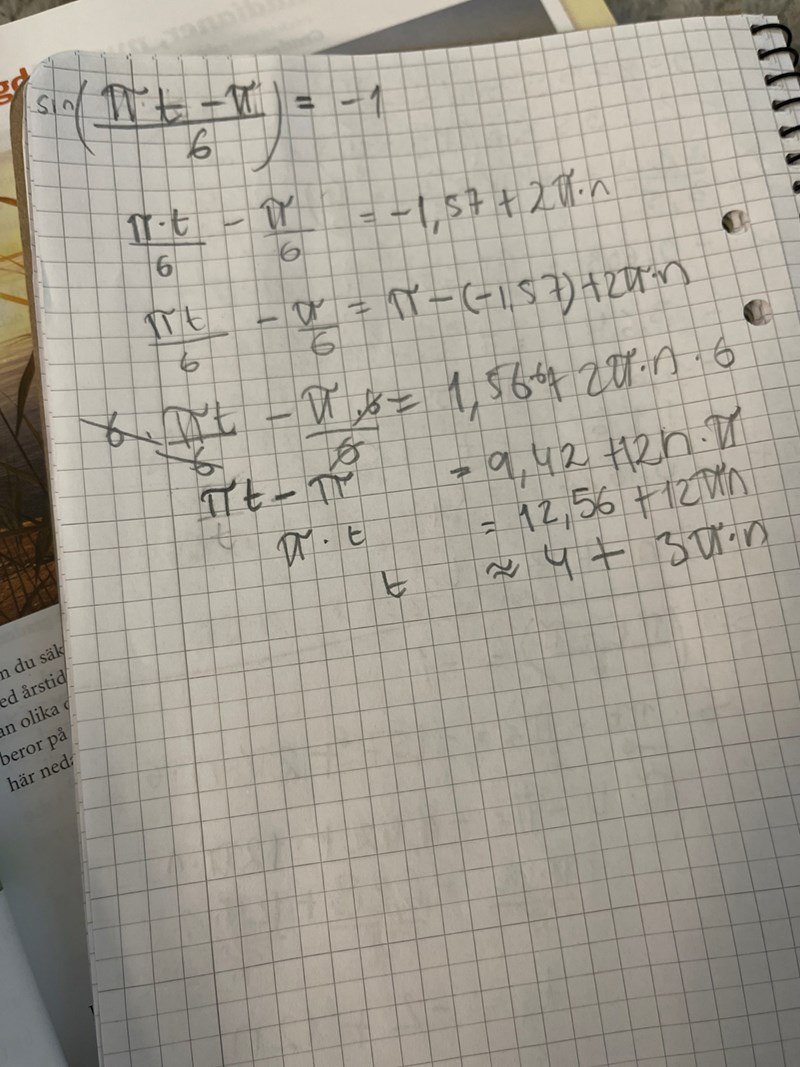 gd
sin((π·t − π)/6) = −1
π·t/6 − π/6 = −1,57 + 2π·n
πt/6 − π/6 = π − (−1,57) + 2π·n
6 · πt/6 − π·6/6 = 1,56·6 + 2π·n · 6
πt − π = 9,42 + 12n·π
π·t = 12,56 + 12πn
t ≈ 4 + 3π·n
n du säk
ed årstid
an olika
beror på
här neda